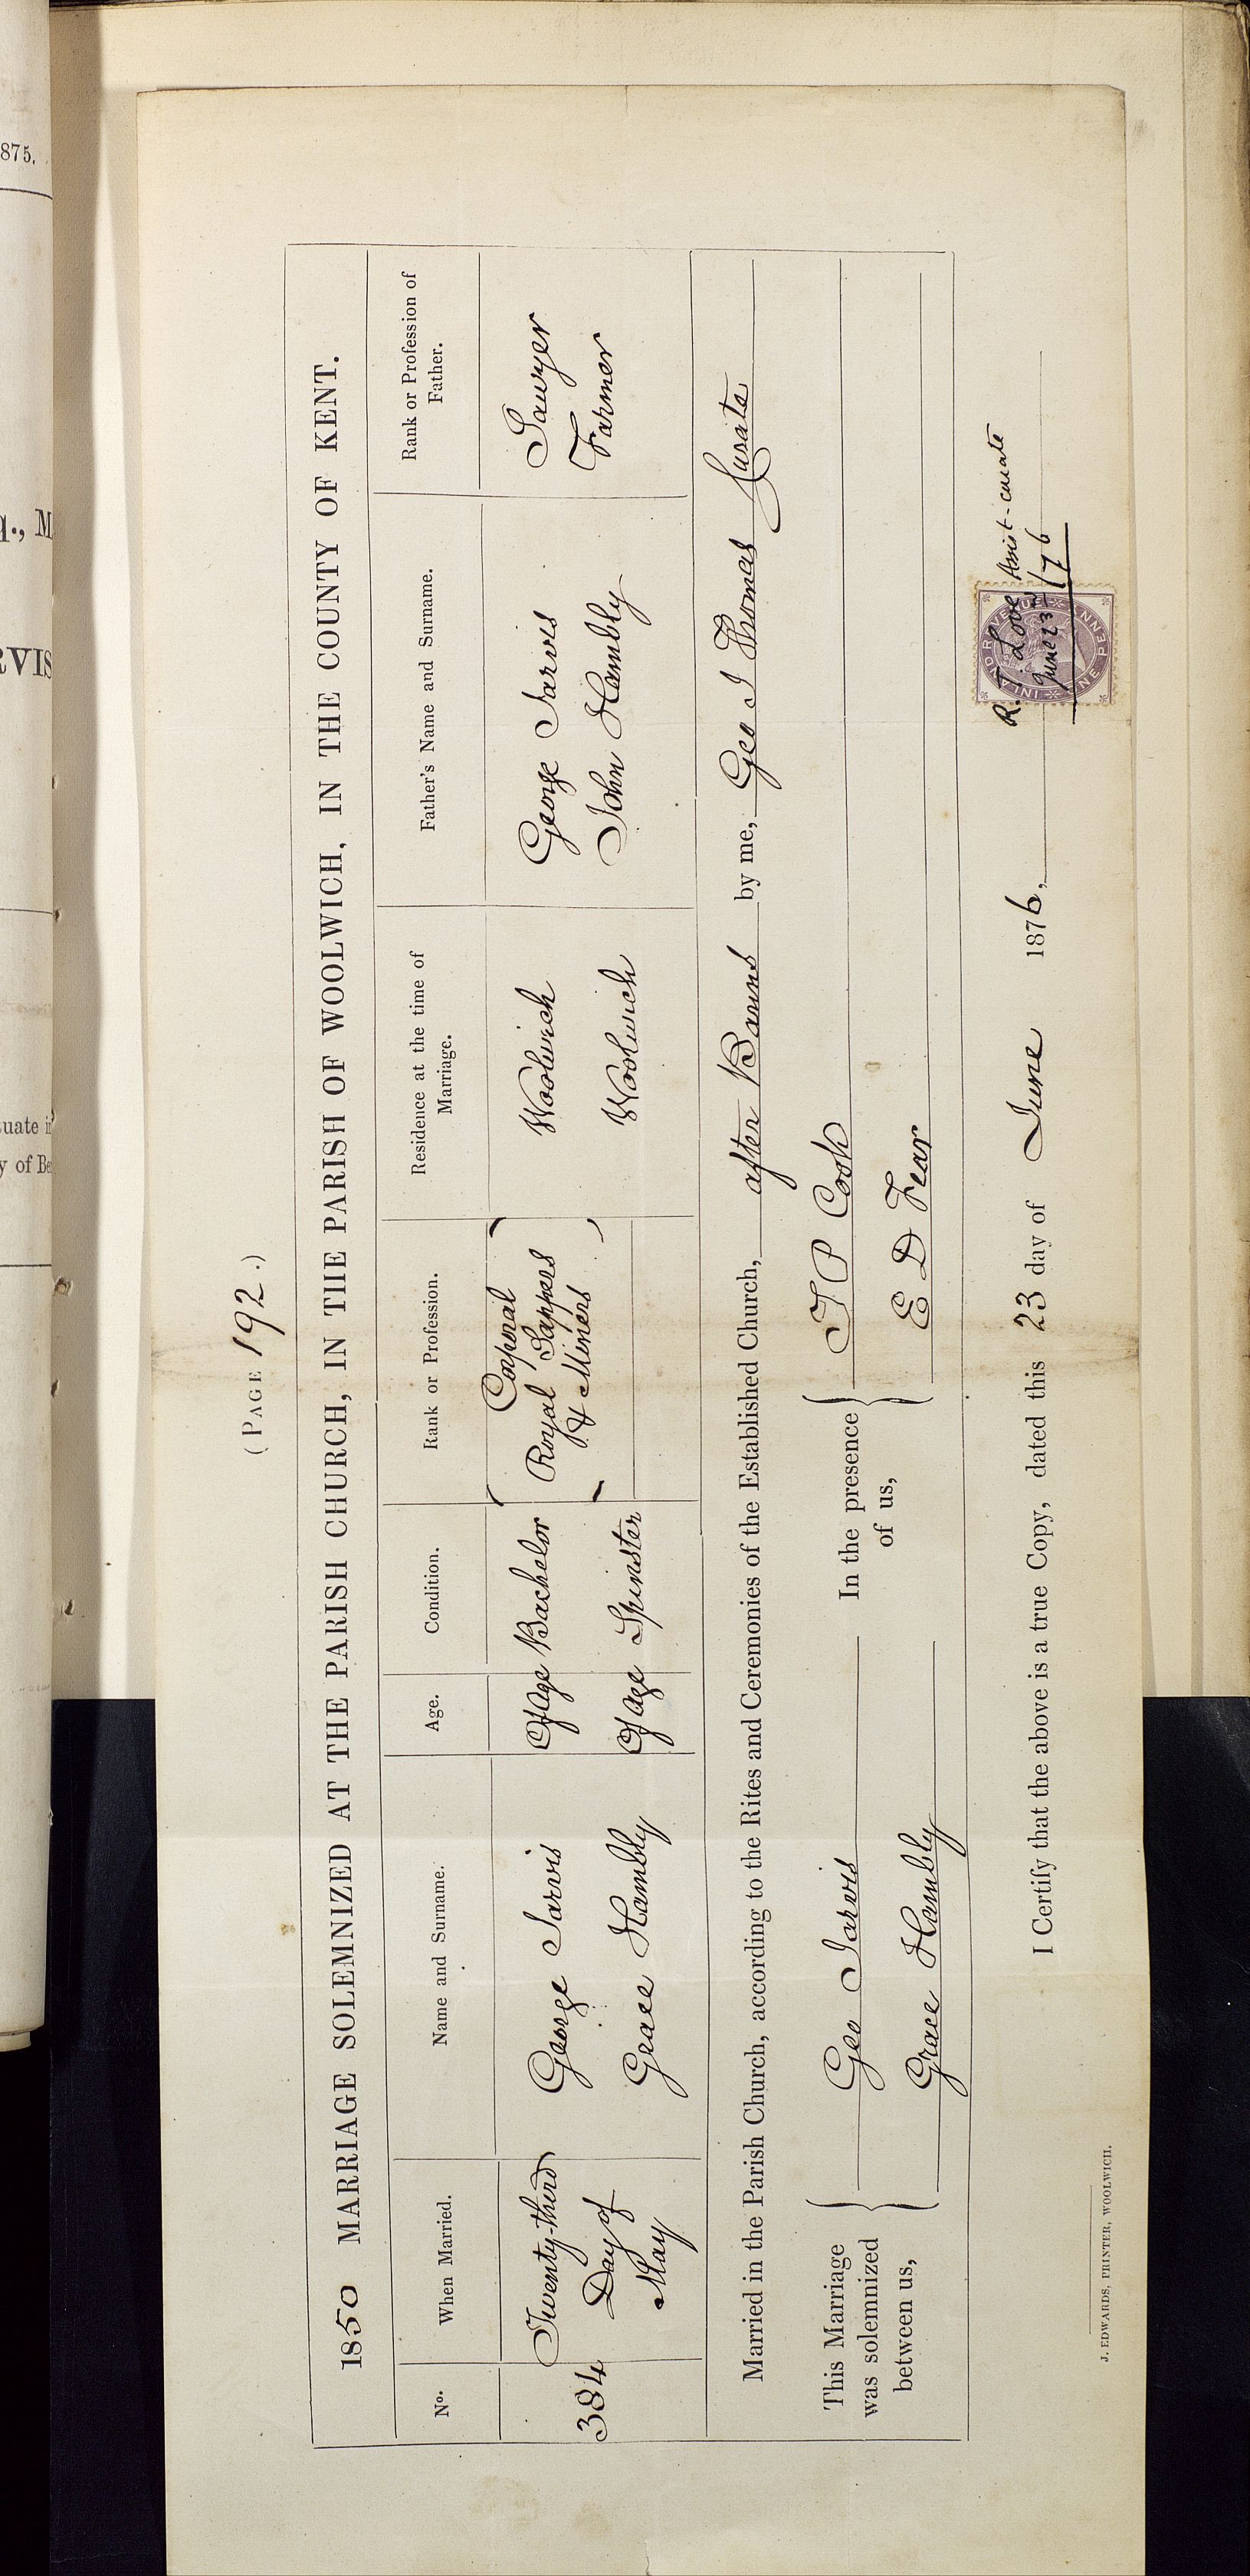 (PAGE 192.)
1850 MARRIAGE SOLEMNIZED AT THE PARISH CHURCH, IN THE PARISH OF WOOLWICH, IN THE COUNTY OF KENT.
No.
When Married.
Name and Surname.
Age.
Condition.
Rank or Profession.
Residence at the time of
Marriage.
Father's Name and Surname.
Rank or Profession of
Father.
384
Twenty-third
Day of
May
George Jarvis
Grace Hambly
Of Age
Of Age
Bachelor
Spinster
Corporal
Royal Sappers
& Miners
Woolwich
Woolwich
George Jarvis
John Hambly
Sawyer
Farmer
Married in the Parish Church, according to the Rites and Ceremonies of the Established Church, after Banns by me, Geo I Thomas Curate
This Marriage
was solemnized
between us,
Geo Jarvis
Grace Hambly
In the presence
of us,
T P Cook
E D Fear
I Certify that the above is a true Copy, dated this 23 day of June 1876,
R. T. Love Assist-curate
June 23rd/76
INLAND REVENUE
ONE PENNY
J. EDWARDS, PRINTER, WOOLWICH.
875.
q., M
RVIS
tuate i
y of Be